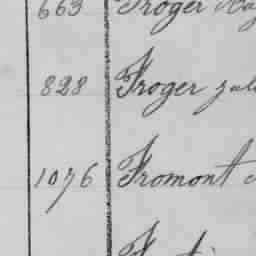 663 Froger
828 Froger Jul
1076 Fromont